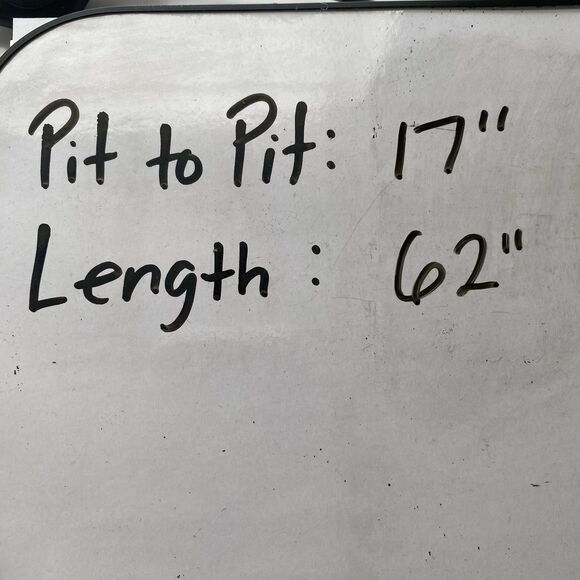 Pit to Pit: 17"
Length: 62"